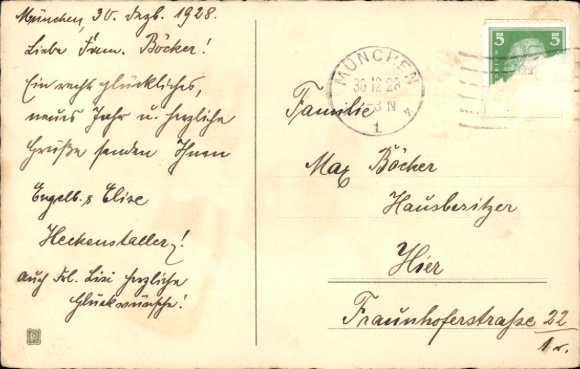 München, 30. Dezb. 1928.
Liebe Fam. Böcker!
Ein recht glückliches,
neues Jahr u. herzliche
Grüße senden Ihnen
Engelb. & Elise
Heckenstaller!
Auch Frl. Lisi herzliche
Glückwünsche!
MÜNCHEN
30 12 28
8 N
1
5 5
Familie
Max Böcker
Hausbesitzer
Hier
Fraunhoferstraße 22
1 r.